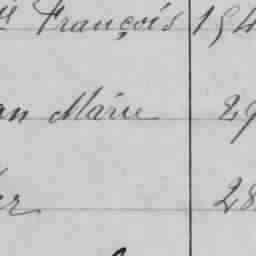 François 154
an Marie 29
er 28